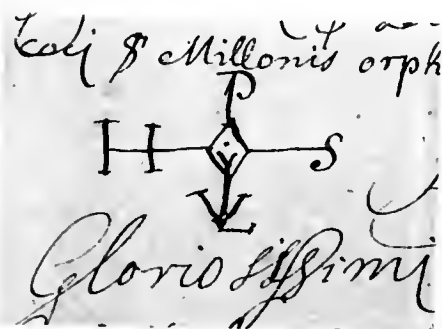 S Millonis orph
P
H S
VL
Gloriosissimi